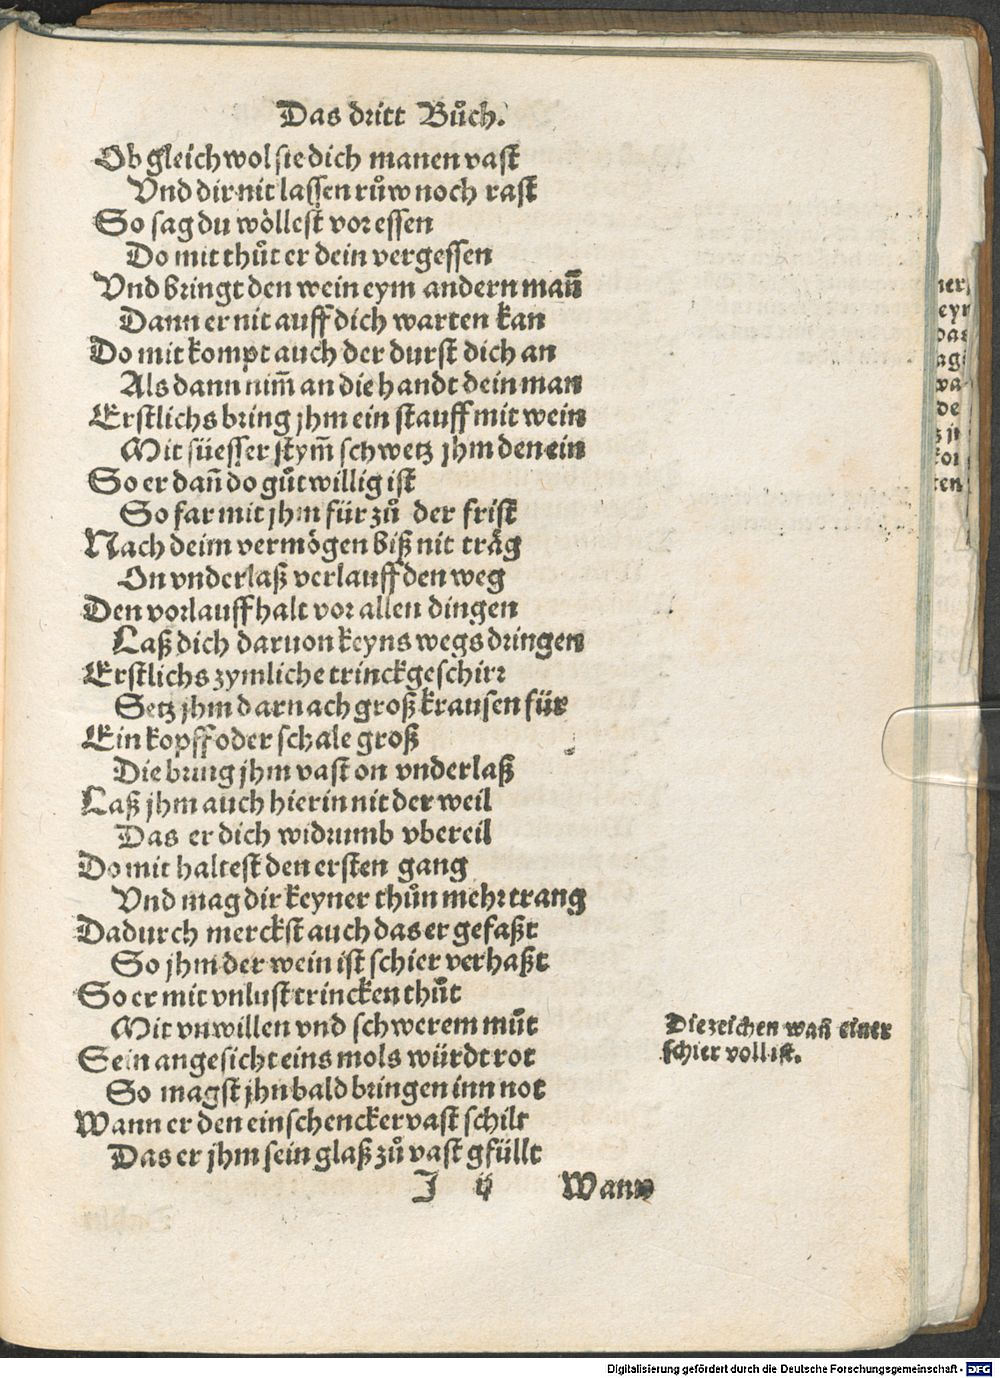 Das dritt Bůch.
Ob gleichwol sie dich manen vast
Vnd dir nit lassen růw noch rast
So sag du wöllest vor essen
Do mit thůt er dein vergessen
Vnd bringt den wein eym andern man̄
Dann er nit auff dich warten kan
Do mit kompt auch der durst dich an
Als dann nim̄ an die handt dein man
Erstlichs bring jhm ein stauff mit wein
Mit süesser stym̄ schwetz jhm den ein
So er dan̄ do gůtwillig ist
So far mit jhm für zů der frist
Nach deim vermögen biß nit träg
On vnderlaß verlauff den weg
Den vorlauff halt vor allen dingen
Laß dich daruon keyns wegs dringen
Erstlichs zymliche trinckgeschirr
Setz jhm darnach groß krausen für
Ein kopff oder schale groß
Die bring jhm vast on vnderlaß
Laß jhm auch hierin nit der weil
Das er dich widrumb vbereil
Do mit haltest den ersten gang
Vnd mag dir keyner thůn mehr trang
Dadurch merckst auch das er gefaßt
So jhm der wein ist schier verhaßt
So er mit vnlust trincken thůt
Mit vnwillen vnd schwerem můt
Sein angesicht eins mols würdt rot
So magst jhn bald bringen inn not
Wann er den einschencker vast schilt
Das er jhm sein glaß zů vast gfüllt
Die zeichen wan̄ einer
schier voll ist.
J ij Wann
ner,
eyn
das
ag
wa
de
z jr
kor
ten
Digitalisierung gefördert durch die Deutsche Forschungsgemeinschaft - DFG